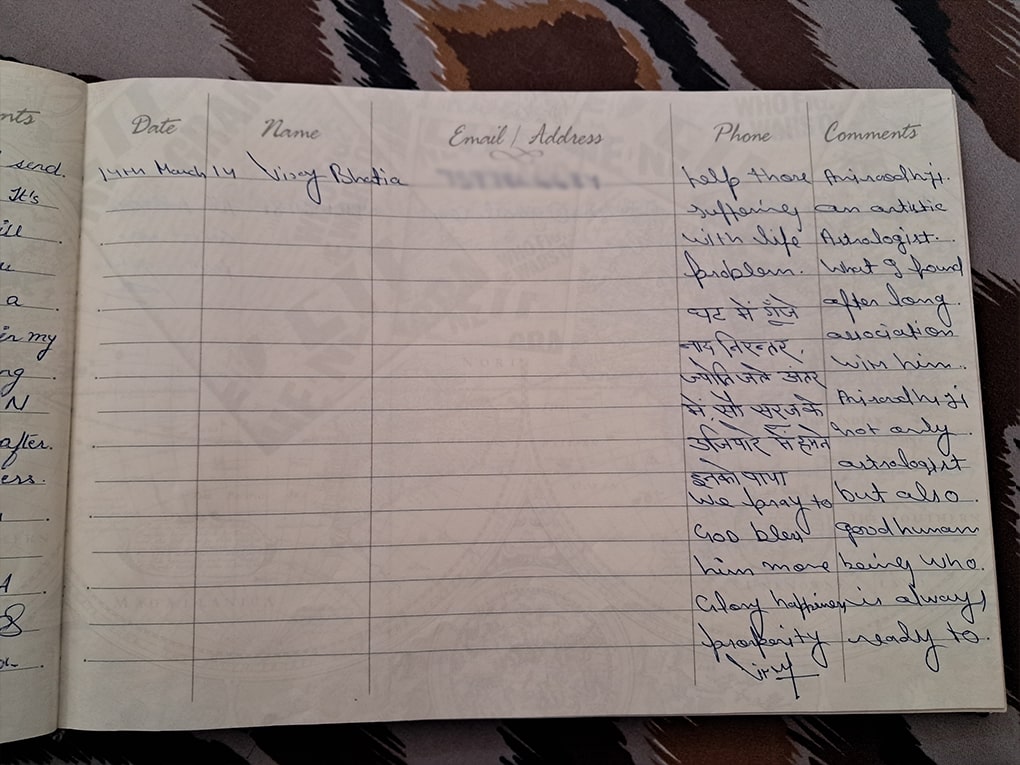 nts
send.
It's
ill
a
in my
ng
N
after.
ess.
Date Name Email / Address Phone Comments
14th March 14 Vijay Bhatia
Aniroodhji.
an artistic
Astrologist.
What I found
after long
association
with him.
Aniroodhji
not only
astrologist
but also
good human
being who.
is always
ready to.
help those
suffering
with life
problem.
घट में गूँजे
नाद निरन्तर,
ज्योति जले अंतर
में, सौ सूरज के
उजियारे में हमने
इनको पाया
We pray to
God bless
him more
Glory happiness
prosperity
Vijay